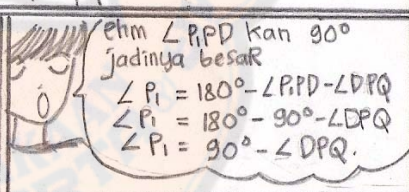 ehm ∠P₁PD kan 90°
jadinya besaR
∠P₁ = 180° - ∠P₁PD - ∠DPQ
∠P₁ = 180° - 90° - ∠DPQ
∠P₁ = 90° - ∠DPQ.